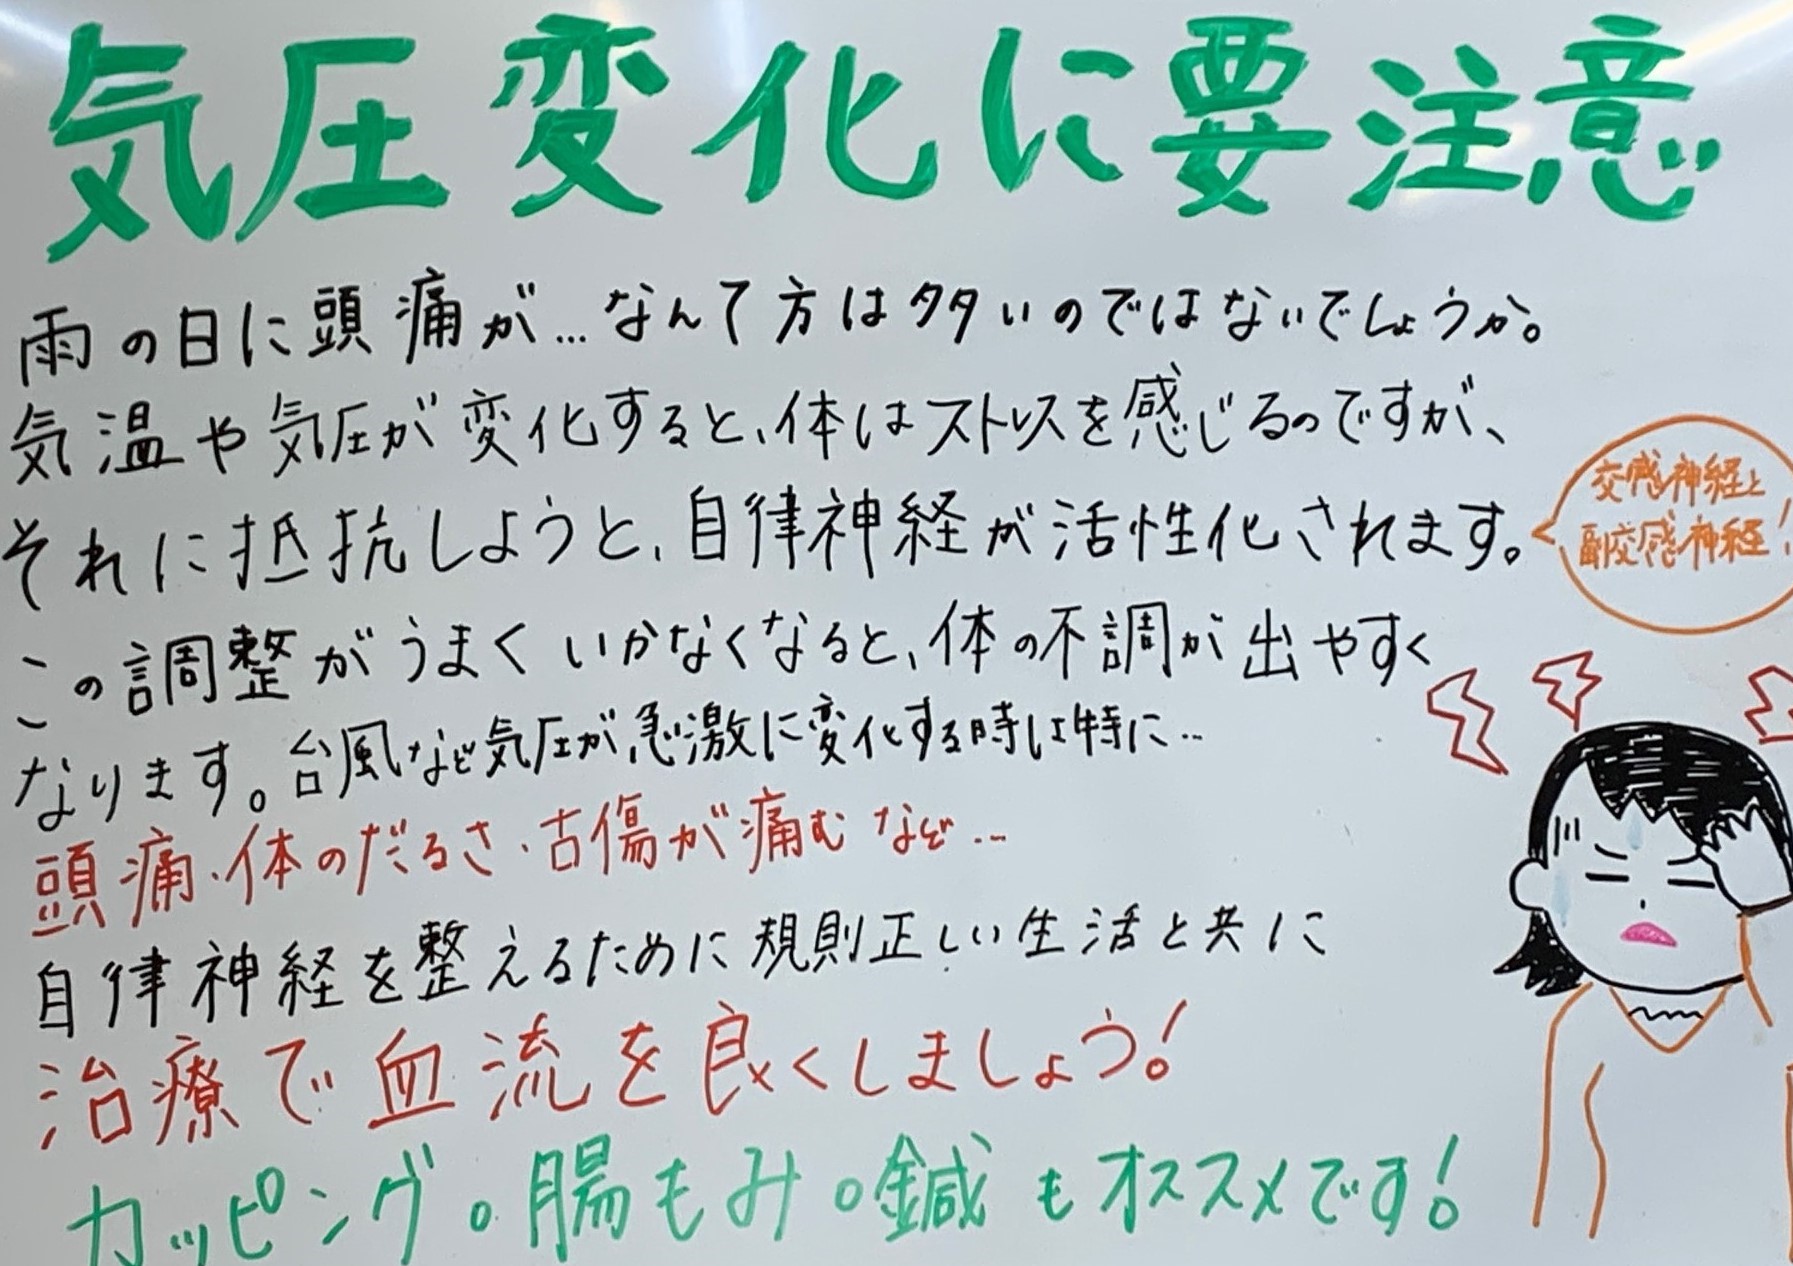 気圧変化に要注意
雨の日に頭痛が…なんて方は多いのではないでしょうか。
気温や気圧が変化すると、体はストレスを感じるのですが、
それに抵抗しようと、自律神経が活性化されます。
交感神経と
副交感神経!
この調整がうまくいかなくなると、体の不調が出やすく
なります。台風など気圧が急激に変化する時は特に…
頭痛・体のだるさ・古傷が痛むなど…
自律神経を整えるために規則正しい生活と共に
治療で血流を良くしましょう!
カッピング。腸もみ。鍼もオススメです!